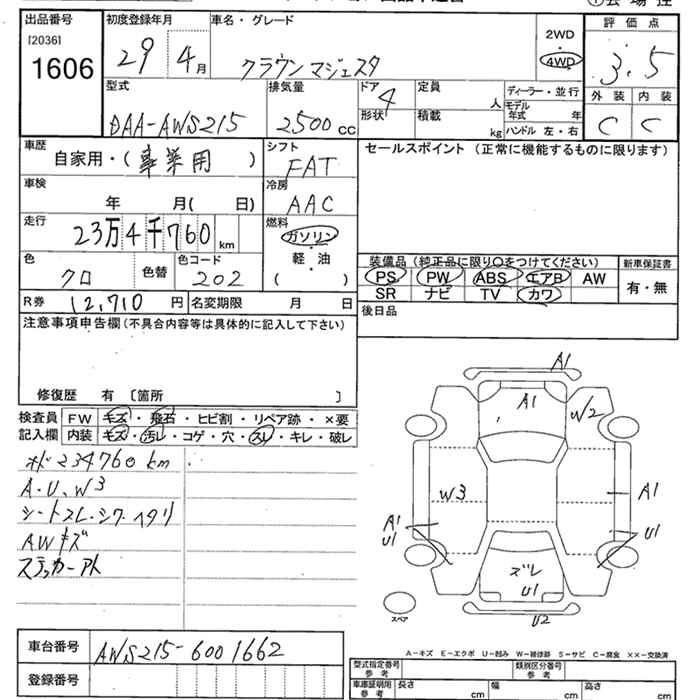 出品番号
[2036]
1606
初度登録年月
29 4月
車名・グレード
クラウンマジェスタ
2WD
・
4WD
評価点
3.5
型式
DAA-AWS215
排気量
2500 CC
ドア
4
形状
定員
人
積載
kg
ディーラー・並行
モデル
年式 年
ハンドル 左・右
外装 内装
C C
車歴
自家用・(事業用)
シフト
FAT
車検
年 月( 日)
冷房
AAC
走行
23万4千760km
燃料
ガソリン
・
軽・油
( )
色
クロ
色替
色コード
202
R券 12,710 円
名変期限 月 日
セールスポイント (正常に機能するものに限ります)
装備品(純正品に限り○をつけてください)
PS PW ABS エアB AW
SR ナビ TV カワ
新車保証書
有・無
後日品
注意事項申告欄(不具合内容等は具体的に記入して下さい)
修復歴 有 〔箇所 〕
検査員
記入欄
FW キズ・飛石・ヒビ割・リペア跡・×要
内装 キズ・汚レ・コゲ・穴・スレ・キレ・破レ
234760km
A・U、W3
シートスレ・シワ・ヘタリ
AWキズ
ステッカーアト
A1
A1
W2
W3
A1
A1
U1
U1
ズレ
U1
U2
スペア
A-キズ E-エクボ U-凹み W-補修跡 S-サビ C-腐食 ××-交換済
車台番号
AWS215-6001662
登録番号
型式指定番号
参考
類別区分番号
参考
車庫証明用
参考
長さ cm
幅 cm
高さ cm